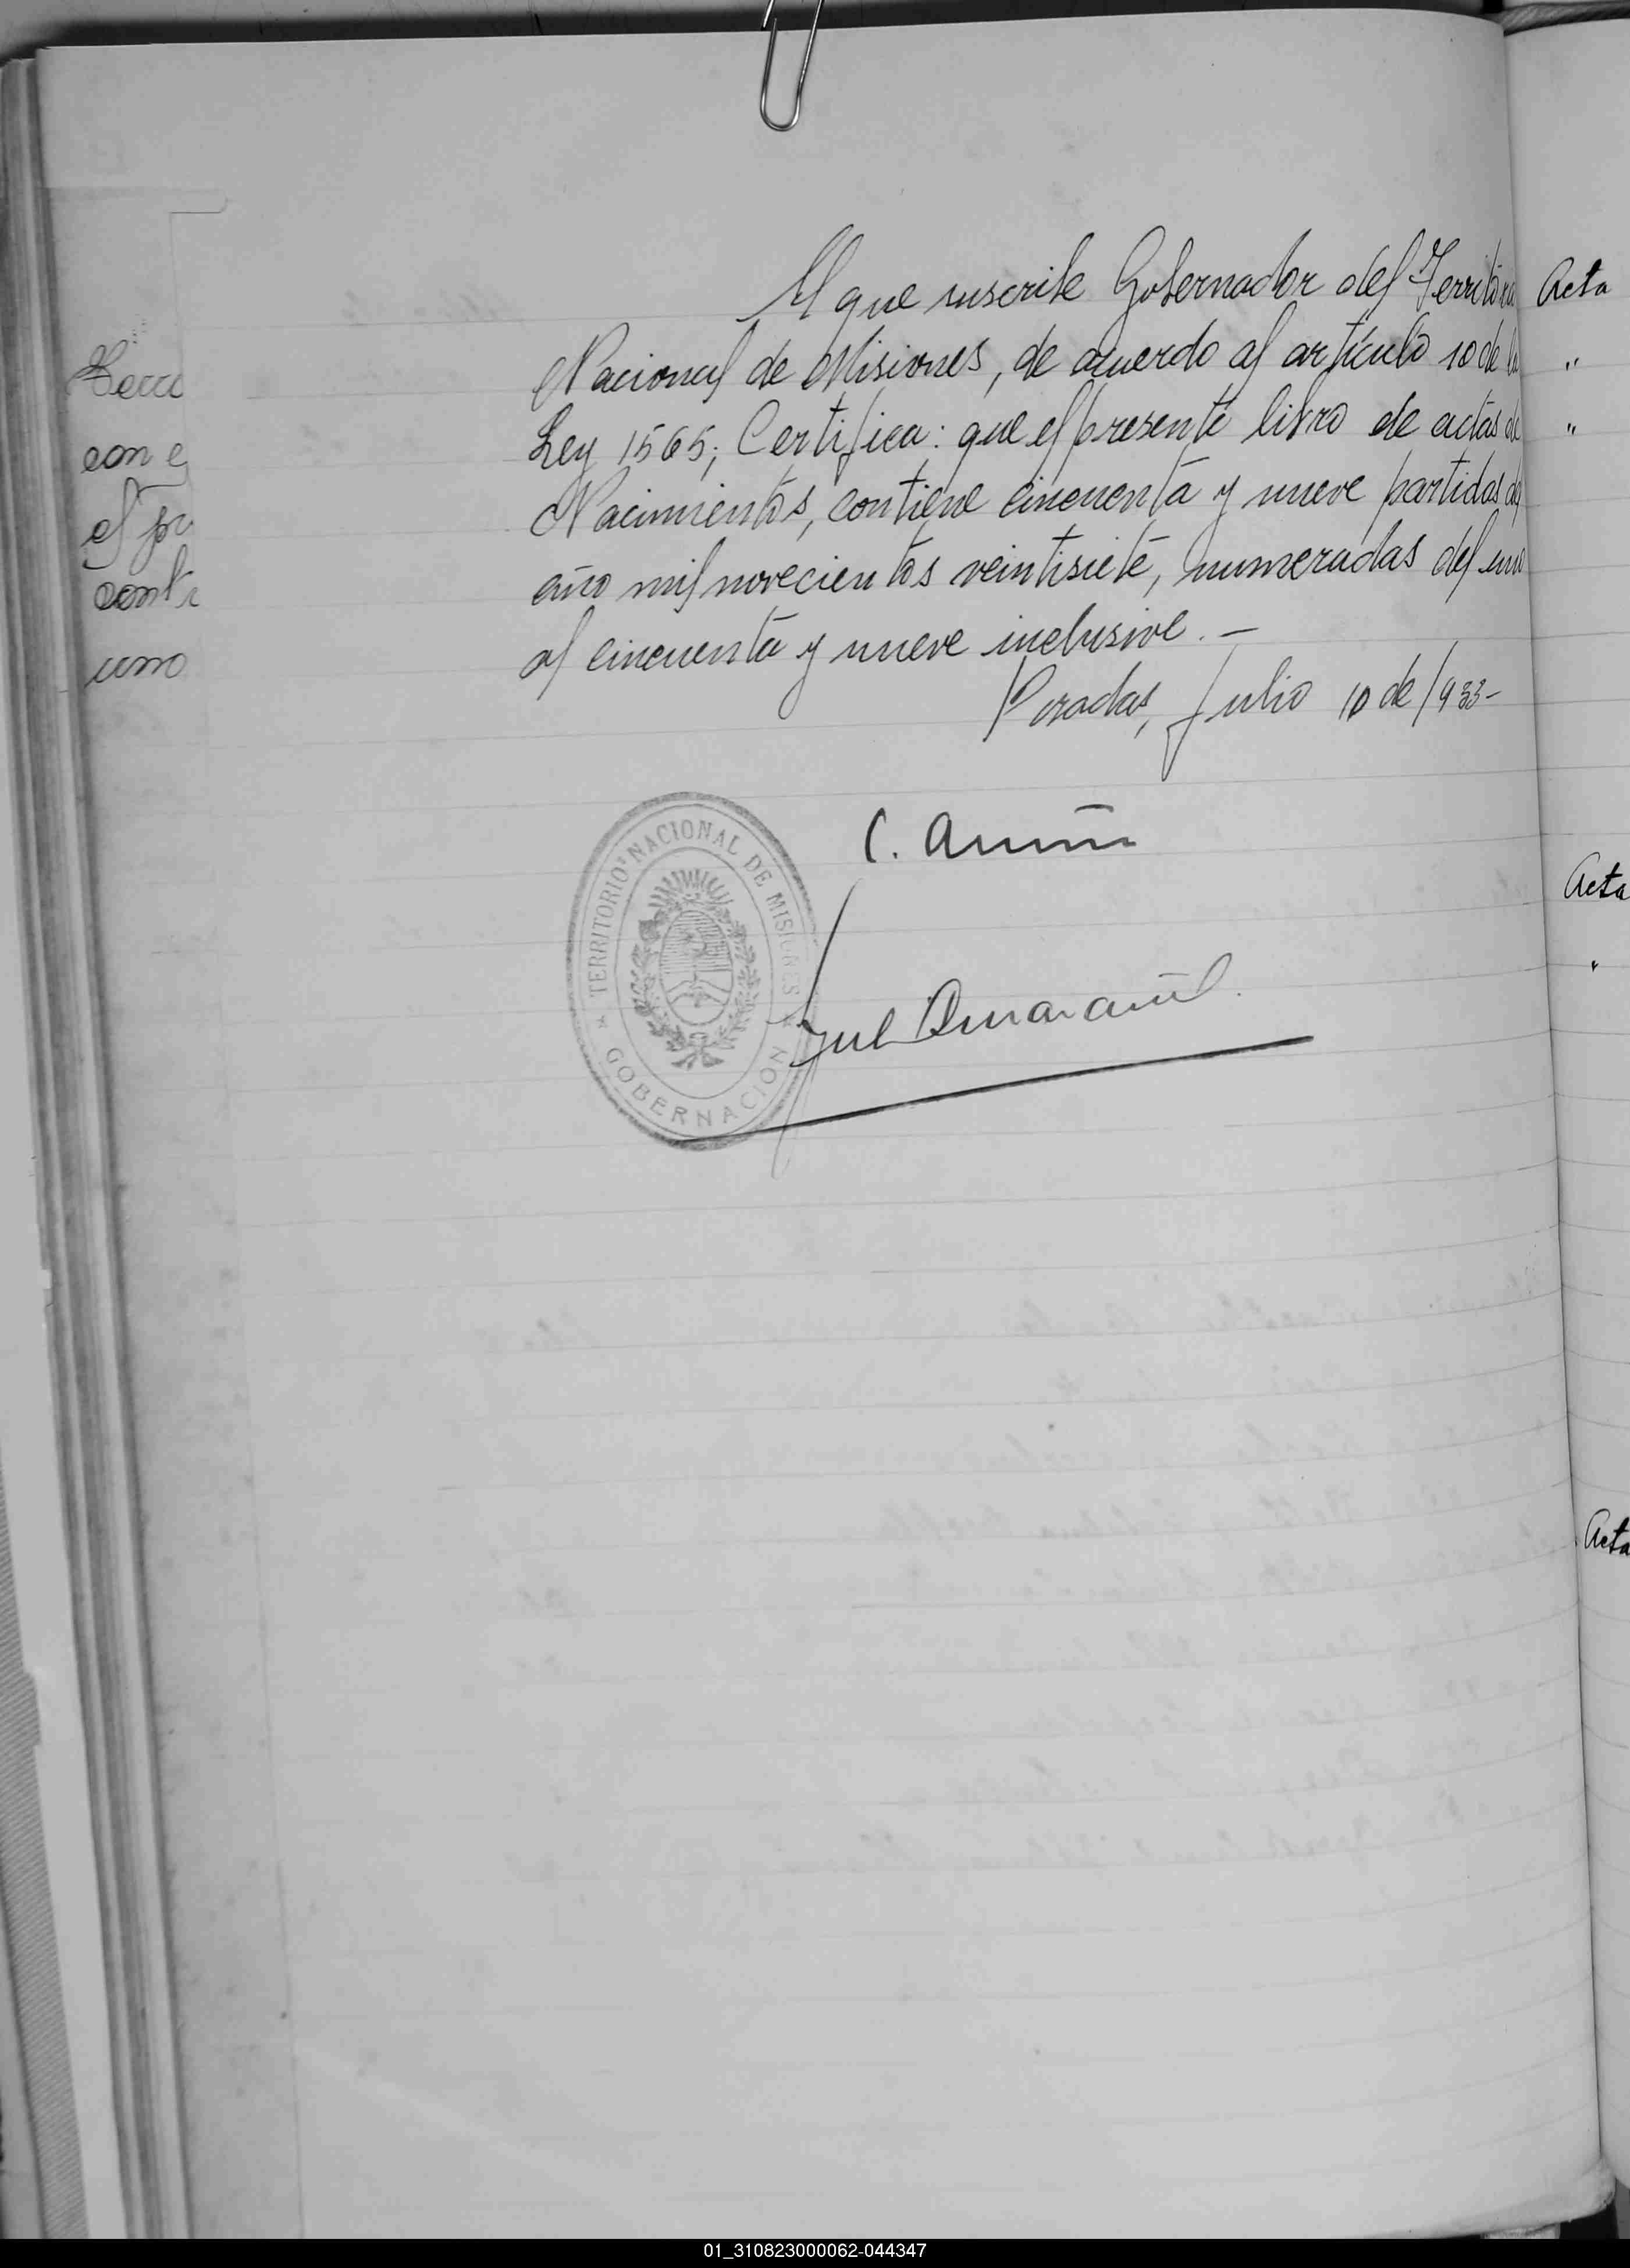 El que suscribe Gobernador del Territorio
Nacional de Misiones, de acuerdo al artículo 10 de la
Ley 1565; Certifica: que el presente libro de actas de
Nacimientos, contiene cincuenta y nueve partidas del
año mil novecientos veintisiete, numeradas del uno
al cincuenta y nueve inclusive. —
Posadas, Julio 10 de 1933-
TERRITORIO NACIONAL DE MISIONES
GOBERNACION
con e
el pr
contr
uno
Acta
"
"
Acta
"
Acta
01_310823000062-044347